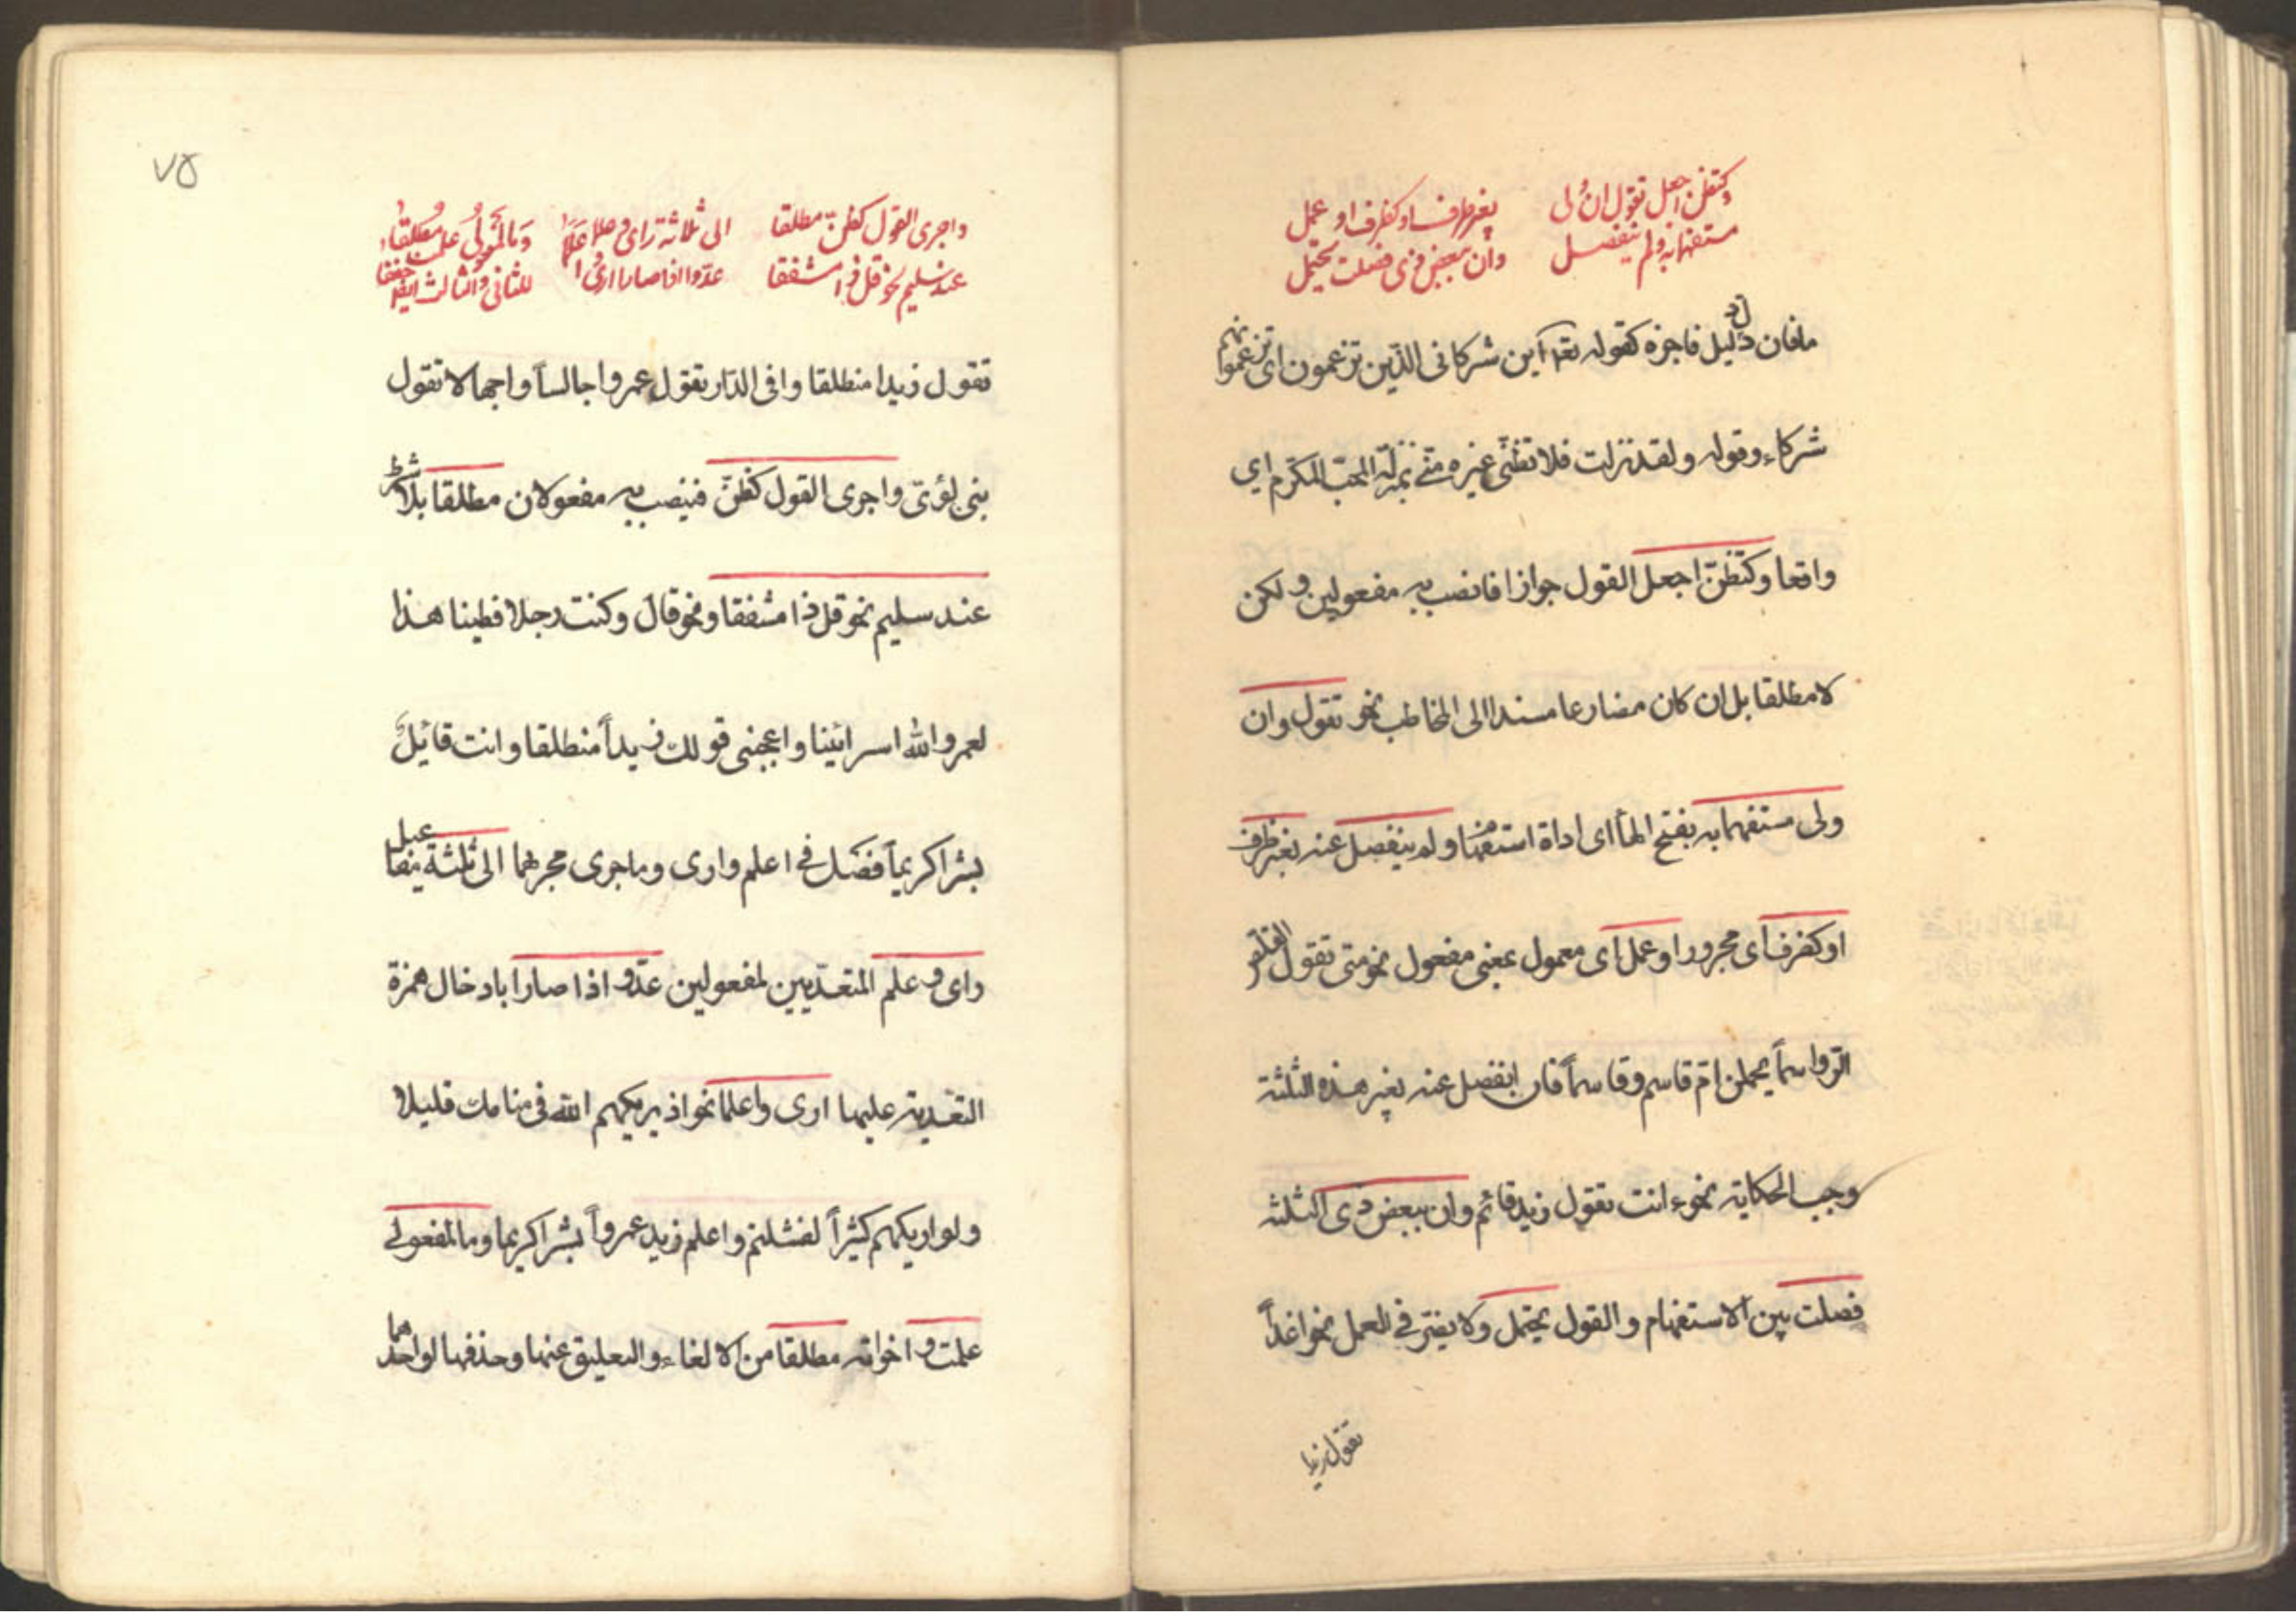 وكتظن اجعل تقول ان ولى   بغير ظرف او كظرف او عمل
مستفهما به ولم ينفصل   وان ببعض ذى فصلت يحتمل
مافان دل دليل فاجزه كقوله تعالى أين شركائى الذين تزعمون اى تزعمونهم
شركاء وقوله ولقد نزلت فلا تظنى غيره منى بمنزلة المحب المكرم اي
واقعا وكتظن اجعل القول جوازا فانصب به مفعولين ولكن
لا مطلقا بل ان كان مضارعا مسندا الى المخاطب نحو تقول وان
ولى مستفهما به بفتح الهاء اى اداة استفهام ولم ينفصل عنه بغير ظرف
او كظرف اى مجرور او عمل اى معمول بمعنى مفعول نحو متى تقول القلص
الرواسما يحملن ام قاسم وقاسما فان انفصل عنه بغير هذه الثلثة
وجب الحكاية نحو ءانت تقول زيد قائم وان ببعض ذى الثلثة
فصلت بين الاستفهام والقول يحتمل ولا يضر فى العمل نحو اغداً
تقول زيدا
٧٥
واجرى القول كظن مطلقا   الى ثلاثة راى وعلما   وما لمفعولى علمت مطلقا
عند سليم نحو قل ذا مشفقا   عدوا اذا صارا ارى واعلما   للثانى والثالث ايضا حققا
تقول زيدا منطلقا وافى الدار تقول عمروا جالساً واجهالا تقول
بنى لؤى واجرى القول كظن فينصب به مفعولان مطلقا بلا شرط
عند سليم نحو قل ذا مشفقا ونحو قال وكنت رجلا فطينا هذا
لعمر والله اسرائينا واعجبنى قولك زيداً منطلقا وانت قائل
بشرا كريماً فصل فى اعلم وارى وما جرى مجرهما الى ثلثة مفاعيل
راى وعلم المتعديين لمفعولين عدو اذا صارا بادخال همزة
التعدية عليهما ارى واعلما نحو اذ يريكهم الله فى منامك قليلا
ولو اريكهم كثيراً لفشلتم واعلم زيد عمرواً بشرا كريما وما لمفعولى
علمت واخواته مطلقا من الالغاء والتعليق عنها وحذفها لواحدهما